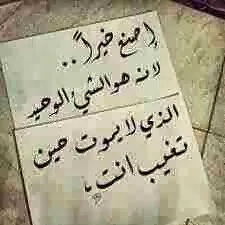 إصنع خيراً ..
لانه هو الشيء الوحيد
الذي لا يموت حين
تغيب انت ،